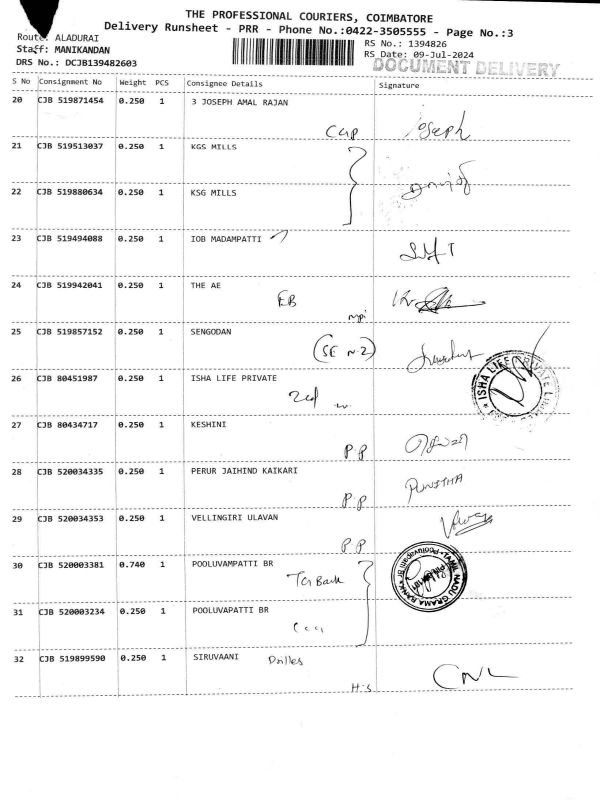 THE PROFESSIONAL COURIERS, COIMBATORE
Delivery Runsheet - PRR - Phone No.:0422-3505555 - Page No.:3
Route: ALADURAI
RS No.: 1394826
Staff: MANIKANDAN
RS Date: 09-Jul-2024
DRS No.: DCJB139482603
DOCUMENT DELIVERY
S No Consignment No Weight PCS Consignee Details Signature
20 CJB 519871454 0.250 1 3 JOSEPH AMAL RAJAN
Joseph
21 CJB 519513037 0.250 1 KGS MILLS
22 CJB 519880634 0.250 1 KSG MILLS
23 CJB 519494088 0.250 1 IOB MADAMPATTI
24 CJB 519942041 0.250 1 THE AE
EB
25 CJB 519857152 0.250 1 SENGODAN
(SE N-2)
26 CJB 80451987 0.250 1 ISHA LIFE PRIVATE
ISHA LIFE PRIVATE LIMITED
27 CJB 80434717 0.250 1 KESHINI
P.P
28 CJB 520034335 0.250 1 PERUR JAIHIND KAIKARI
P.P PUNITHA
29 CJB 520034353 0.250 1 VELLINGIRI ULAVAN
P.P
30 CJB 520003381 0.740 1 POOLUVAMPATTI BR
TG Bank
TAMIL NADU GRAMA BANK
Pooluvapatti Br
31 CJB 520003234 0.250 1 POOLUVAPATTI BR
32 CJB 519899590 0.250 1 SIRUVAANI
H.S